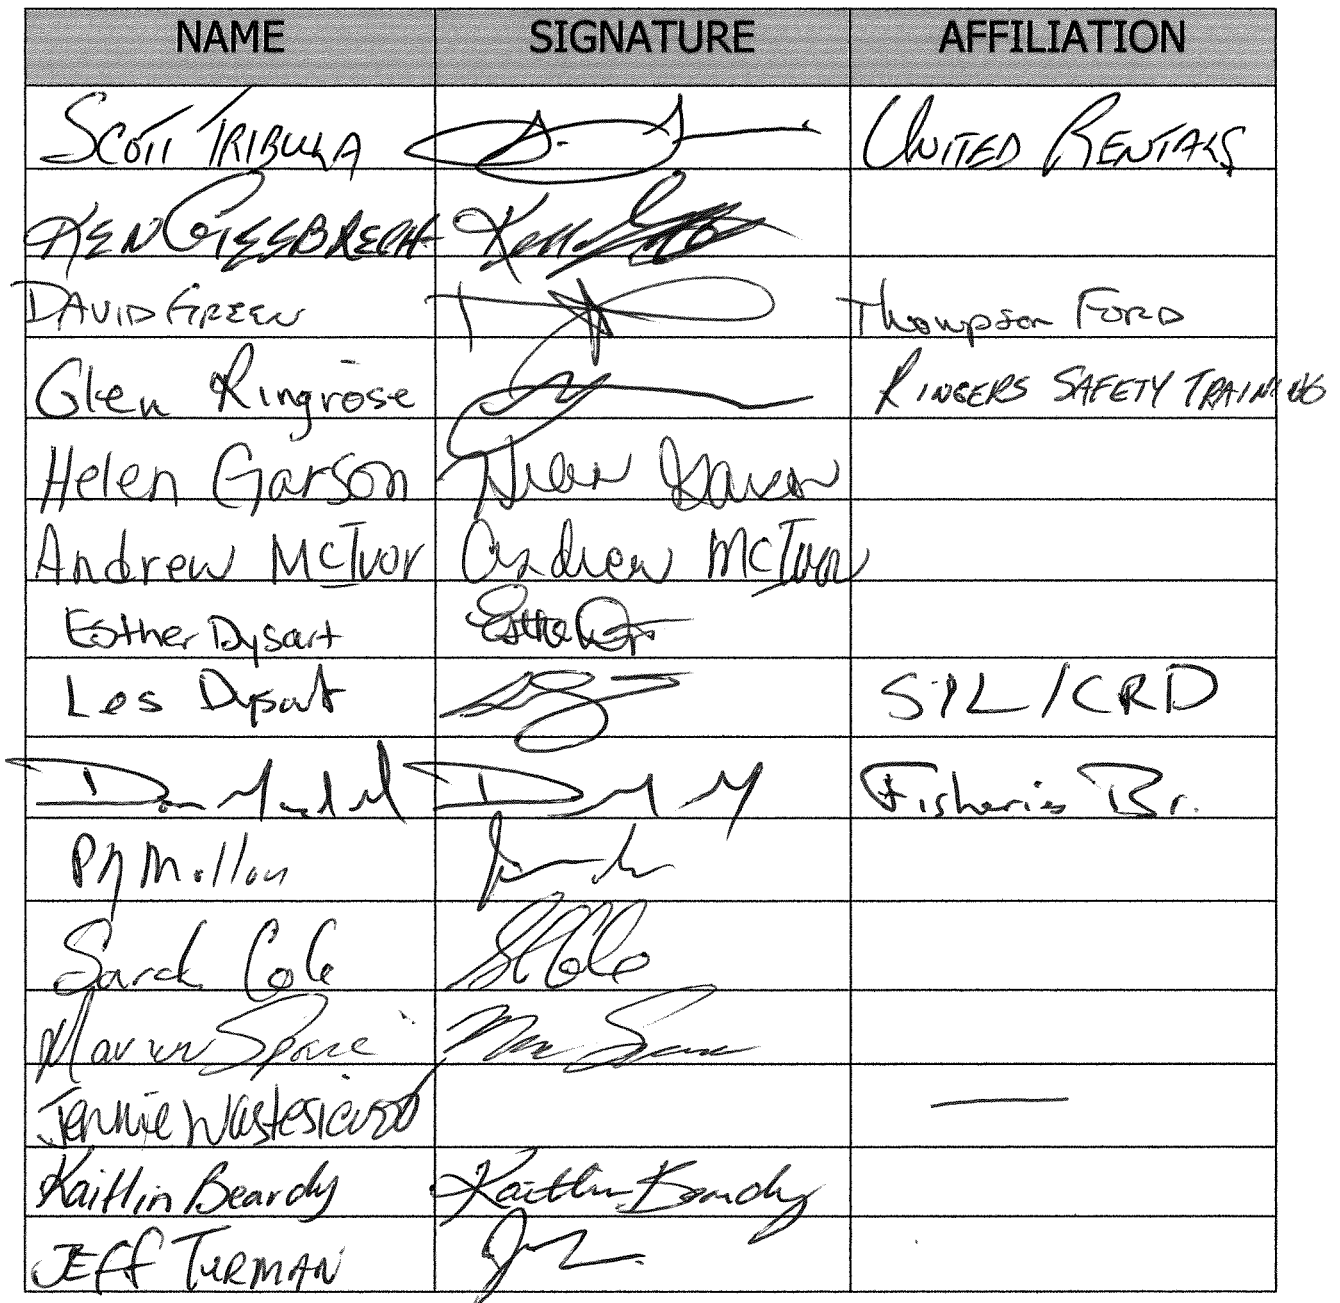 NAME SIGNATURE AFFILIATION
SCOTT TRIBULA UNITED RENTALS
KEN GIESBRECHT Ken
DAVID GREEN Thompson FORD
Glen Ringrose RINGERS SAFETY TRAINING
Helen Garson Helen Garson
Andrew McIvor Andrew McIvor
Esther Dysart Esther
Les Dysart SIL/CRD
Don Fisheries Br.
Sarah Cole SCole
Spence
Jennie Wastesicoot —
Kaitlin Beardy Kaitlin Beardy
JEFF TURMAN